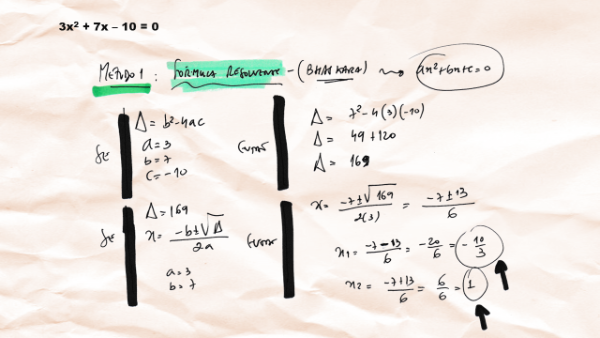 3x² + 7x – 10 = 0
MÉTODO 1 : FÓRMULA RESOLVENTE - (BHASKARA) ax²+bx+c=0
SE
Δ = b²-4ac
a = 3
b = 7
c = -10
ENTÃO
Δ = 7²-4(3)(-10)
Δ = 49+120
Δ = 169
SE
Δ = 169
x = (-b±√Δ)/2a
a = 3
b = 7
ENTÃO
x = (-7±√169)/2(3) = (-7±13)/6
x1 = (-7-13)/6 = -20/6 = -10/3
x2 = (-7+13)/6 = 6/6 = 1